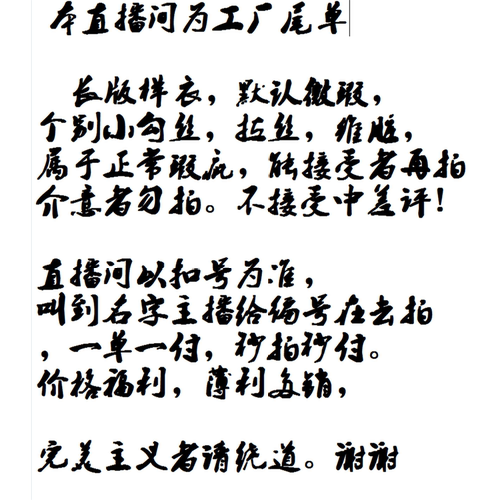 本直播间为工厂尾单
长版样衣，默认微瑕，
个别小勾丝，拉丝，难脏，
属于正常瑕疵，能接受者再拍
介意者勿拍。不接受中差评！
直播间以扣号为准，
叫到名字主播给编号在去拍
，一单一付，秒拍秒付。
价格福利，薄利多销，
完美主义者请绕道。谢谢